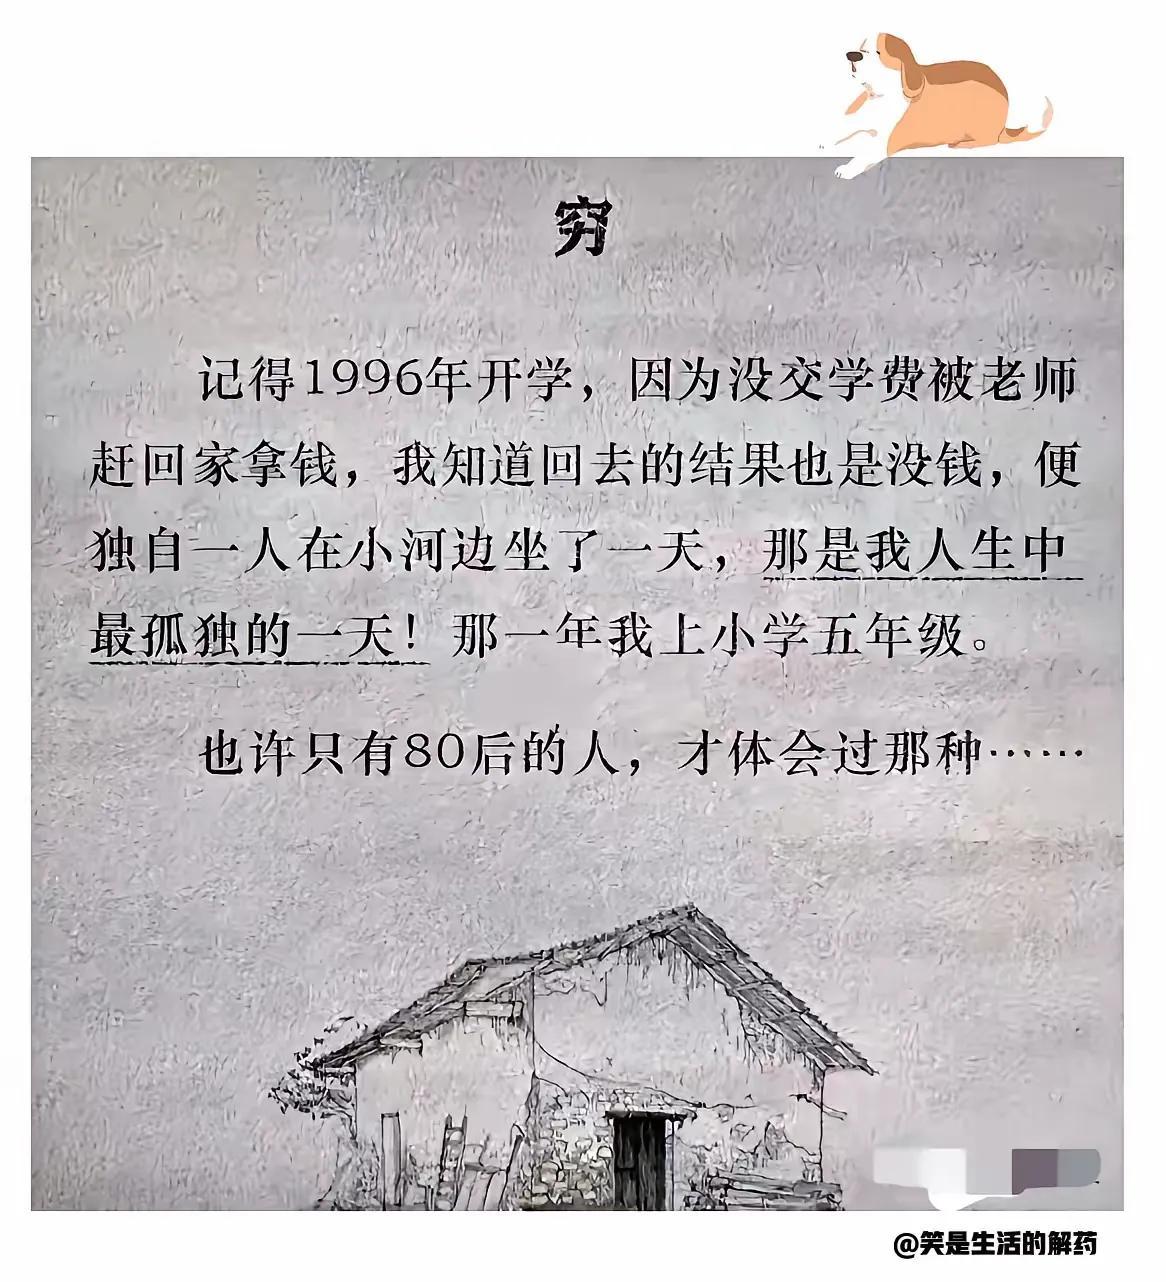 穷
记得1996年开学，因为没交学费被老师
赶回家拿钱，我知道回去的结果也是没钱，便
独自一人在小河边坐了一天，那是我人生中
最孤独的一天！那一年我上小学五年级。
也许只有80后的人，才体会过那种……
@笑是生活的解药